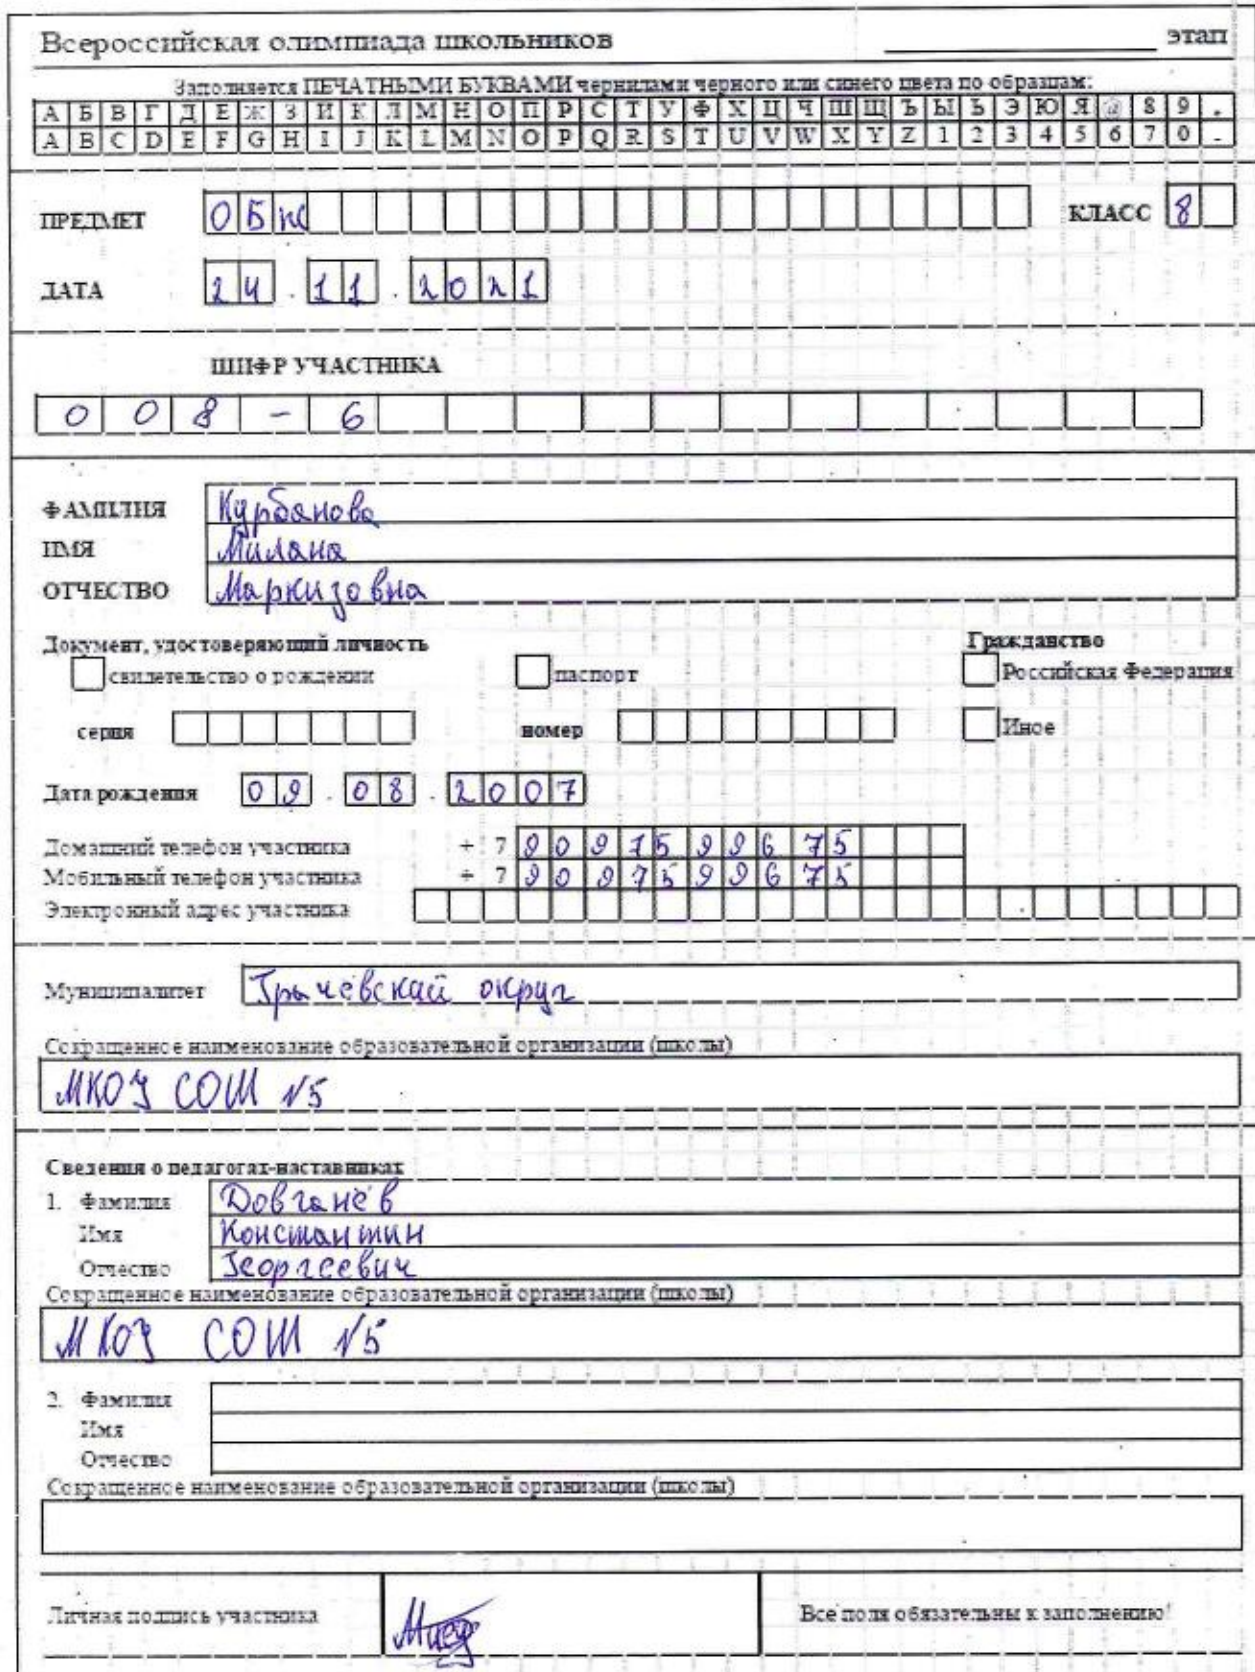 Всероссийская олимпиада школьников ____________ этап
Заполняется ПЕЧАТНЫМИ БУКВАМИ чернилами черного или синего цвета по образцам:
А Б В Г Д Е Ж З И К Л М Н О П Р С Т У Ф Х Ц Ч Ш Щ Ъ Ы Ь Э Ю Я @ 8 9 .
A B C D E F G H I J K L M N O P Q R S T U V W X Y Z 1 2 3 4 5 6 7 0 -
ПРЕДМЕТ ОБЖ КЛАСС 8
ДАТА 24.11.2021
ШИФР УЧАСТНИКА
008-6
ФАМИЛИЯ Курбанова
ИМЯ Милана
ОТЧЕСТВО Маркизовна
Документ, удостоверяющий личность Гражданство
свидетельство о рождении паспорт Российская Федерация
серия номер Иное
Дата рождения 09.08.2007
Домашний телефон участника + 7 9097599675
Мобильный телефон участника + 7 9097599675
Электронный адрес участника
Муниципалитет Грачёвский округ
Сокращенное наименование образовательной организации (школы)
МКОУ СОШ №5
Сведения о педагогах-наставниках
1. Фамилия Довганёв
Имя Константин
Отчество Георгеевич
Сокращенное наименование образовательной организации (школы)
МКОУ СОШ №5
2. Фамилия
Имя
Отчество
Сокращенное наименование образовательной организации (школы)
Личная подпись участника Все поля обязательны к заполнению!